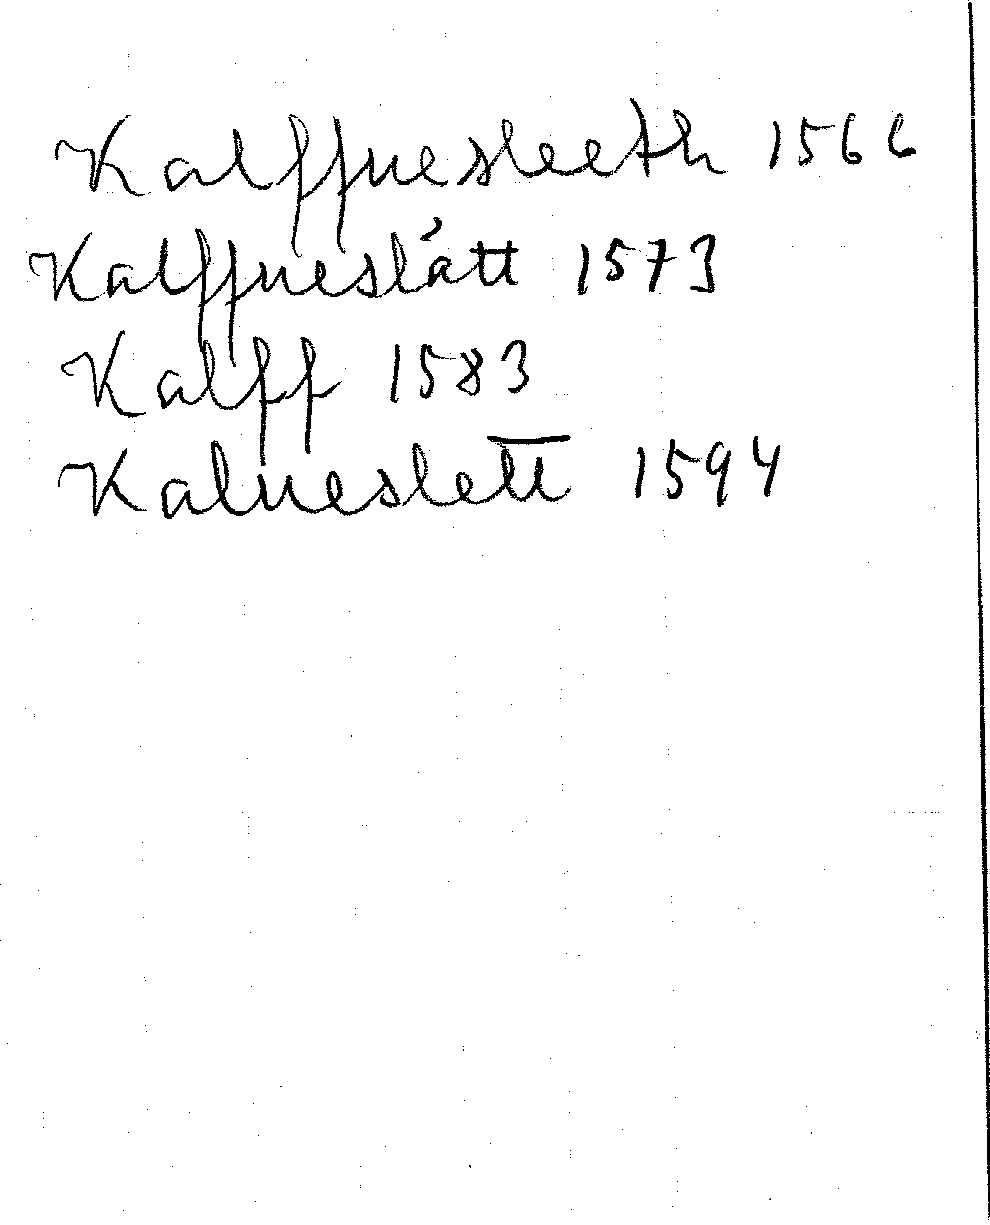 Kalffuesleeth 1566
Kalffueslått 1573
Kalff 1583
Kalueslett 1594